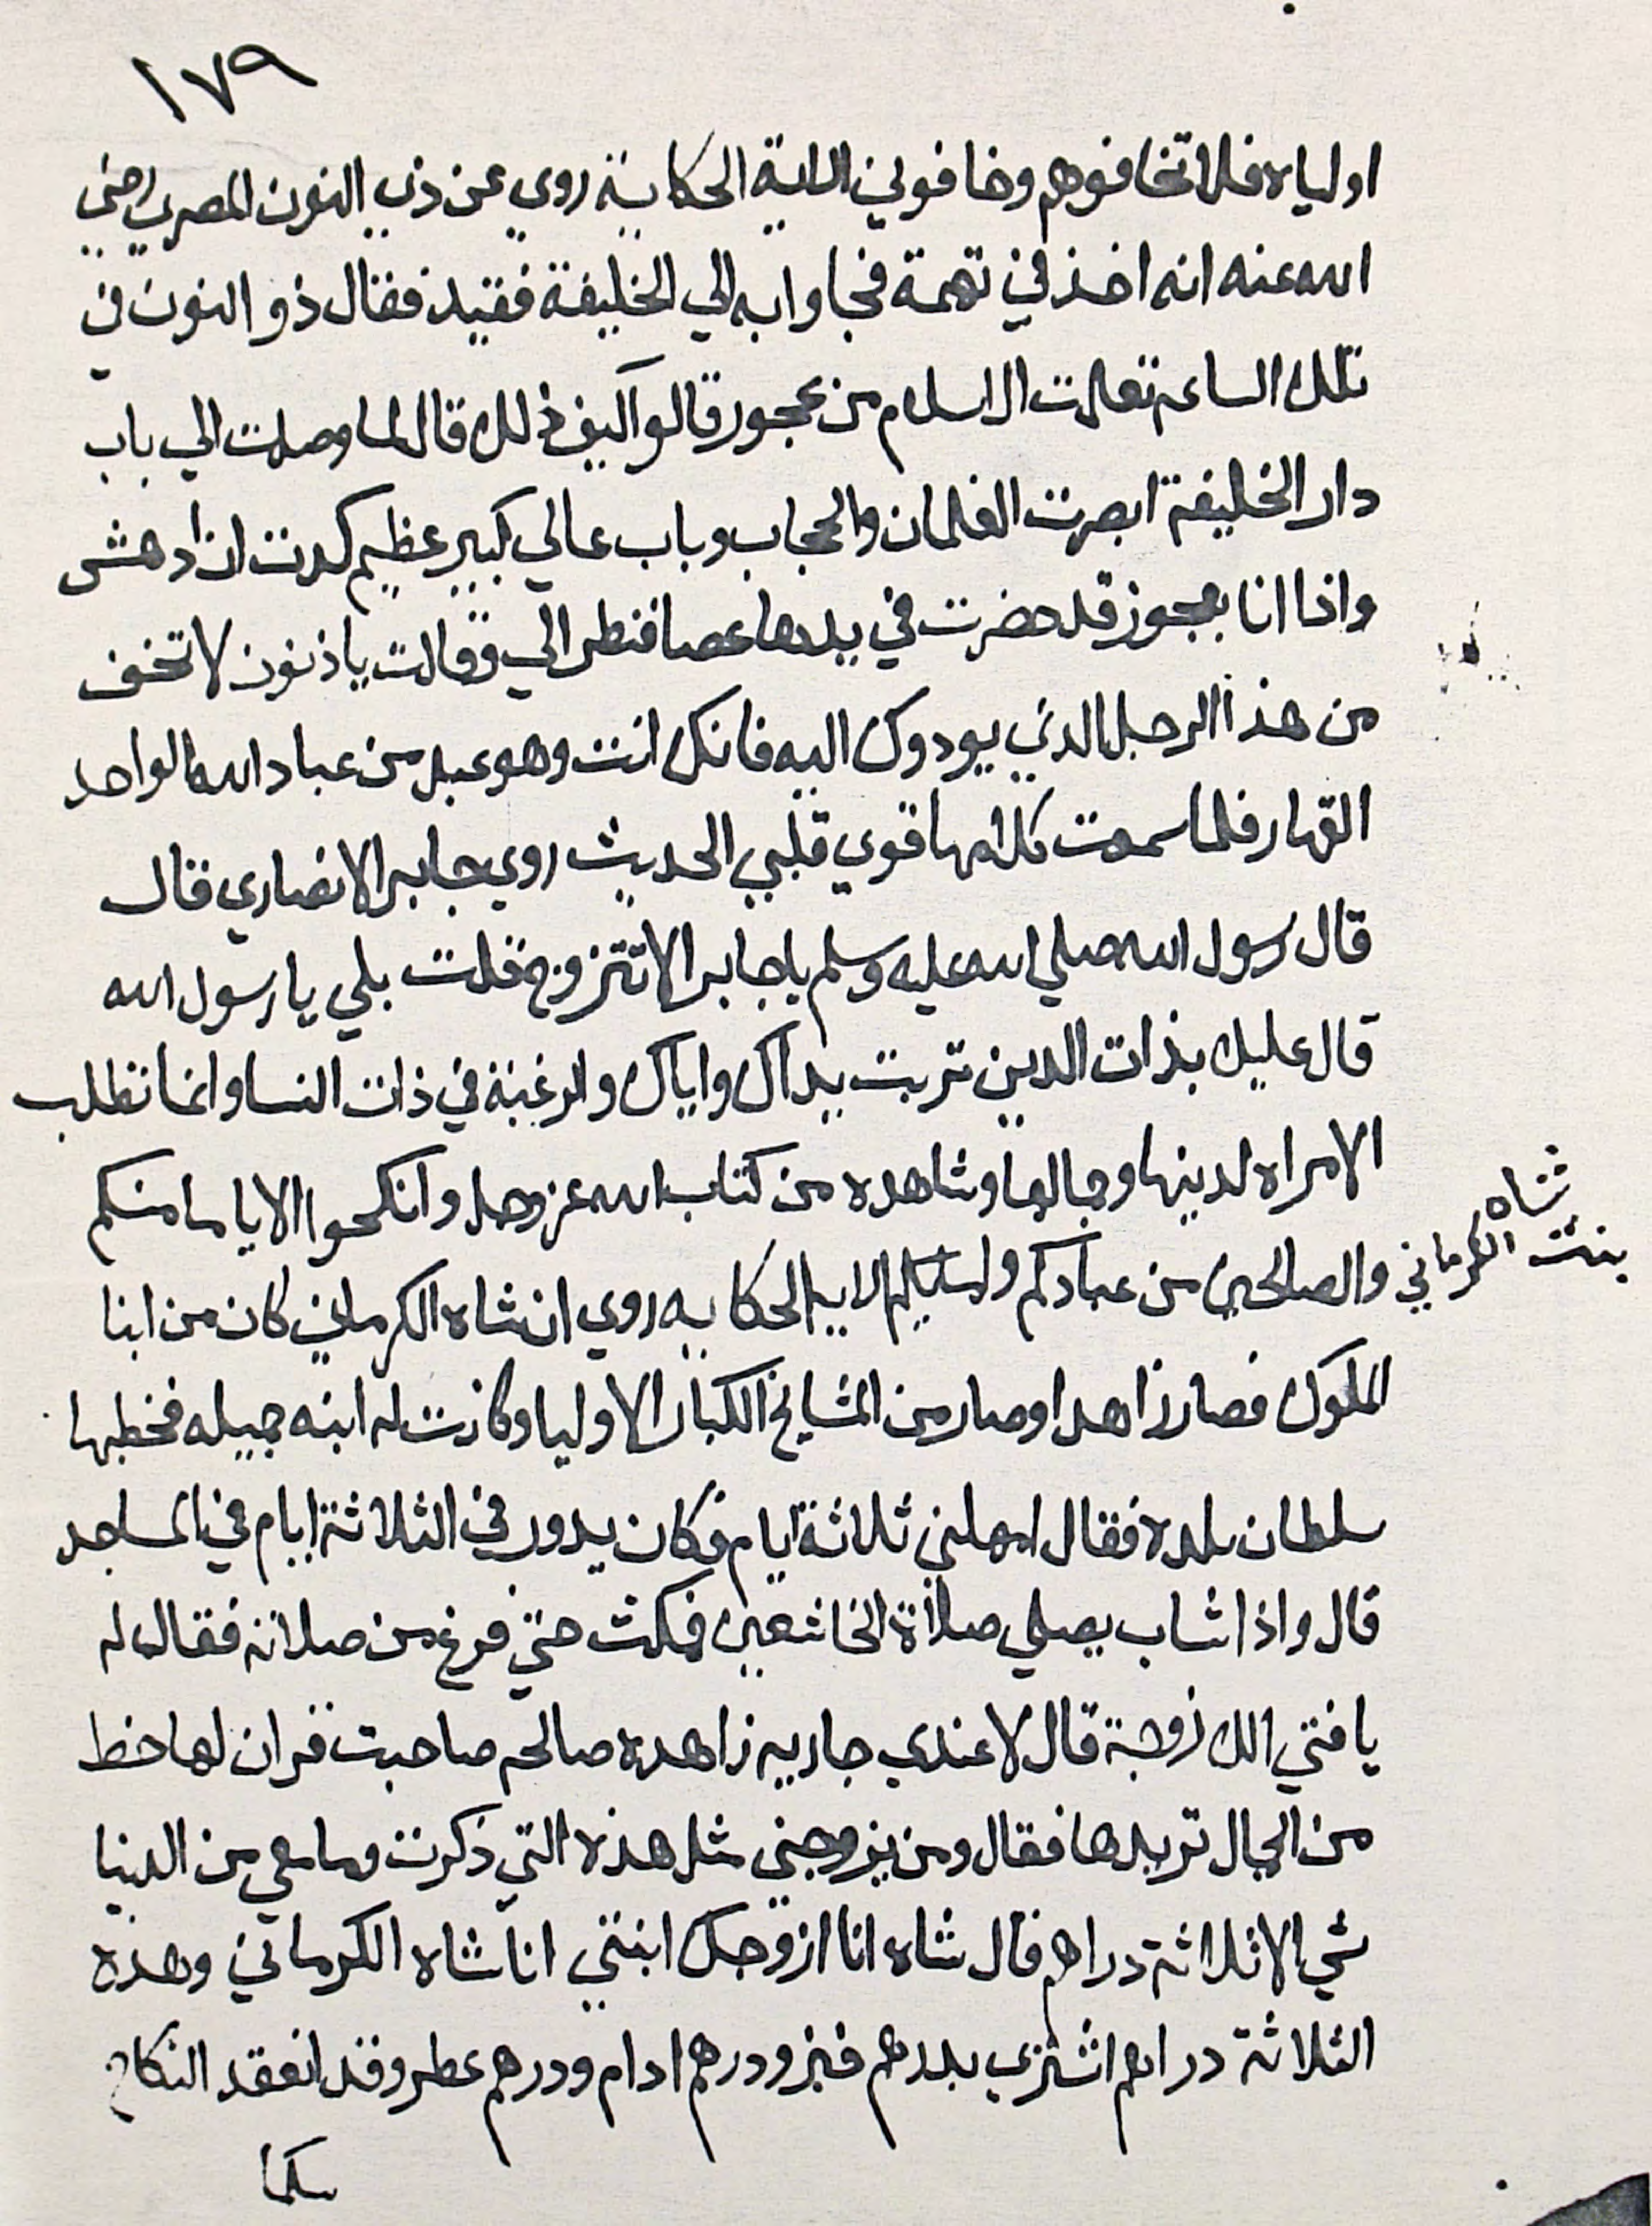 ١٧٩
اولياه فلا تخافوهم وخافوني الاية الحكاية روي عن ذي النون المصري رضي
الله عنه انه اخذ في تهمة فجاوا به الي الخليفة فقيد فقال ذو النون في
تلك الساعه تعلمت الاسلام من عجوز قالوا كيف ذلك قال لما وصلت الي باب
دار الخليفة ابصرت الغلمان والحجاب وباب عالي كبير عظيم كدت ان ادهش
واذا انا بعجوز قد حضرت في يدها عصا فنظر الي وقالت يا ذنون لا تخف
من هذا الرجل الذي يودوك اليه فانك انت وهو عبد من عباد الله الواحد
القهار فلما سمعت كلامها قوي قلبي الحديث روي جابر الانصاري قال
قال رسول الله صلي الله عليه وسلم يا جابر الا تتزوج قلت بلي يا رسول الله
قال عليك بذات الدين تربت يداك واياك والرغبة في ذات النسا وانما تطلب
الامراه لدينها وجمالها وشاهده من كتاب الله عز وجل وانكحوا الاياما منكم
والصالحين من عبادكم وامائكم الايه الحكايه روي ان شاه الكرماني كان من ابنا
شاه
بنت الكرماني
الملوك فصار زاهدا وصار من المشايخ الكبار الاوليا وكانت له ابنه جميله فخطبها
سلطان بلده فقال امهلني ثلاثة ايام فكان يدور في الثلاثة ايام في المساجد
قال واذا شاب يصلي صلاة الخاشعين فمكث حتي فرغ من صلاته فقال له
يا فتي الك زوجة قال لا عندي جاريه زاهده صالحه صاحبت قران لها حظ
من الجمال تريدها فقال ومن يزوجني مثل هذه التي ذكرت وما معي من الدنيا
شي الا ثلاثة دراهم قال شاه انا ازوجك ابنتي انا شاه الكرماني وهذه
الثلاثة دراهم اشتري بدرهم خبز ودرهم ادام ودرهم عطر وقد انعقد النكاح